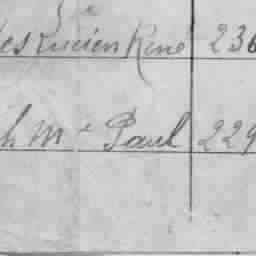 es Lucien René 236
h Mce Paul 229